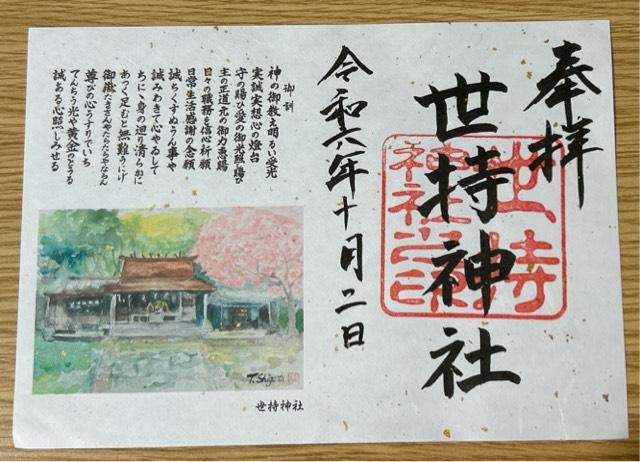 奉拝
世持神社
世持神社之印
令和六年十月二日
御訓
神の御教え明るい愛光
実誠実想心の燈台
守り賜ひ愛の御光照賜ひ
主の正道元の御力恵賜
日々の職務を信心祈願
日常生活感謝の念願
誠ちくすぬうん事や
誠みわきて心やるして
ちにに身の廻り清らかに
あつく足むと無難うにげ
御嶽
尊びの心うすりでいち
てんちう光や黄金の
誠ある心照しみせる
T.Shigeta
世持神社